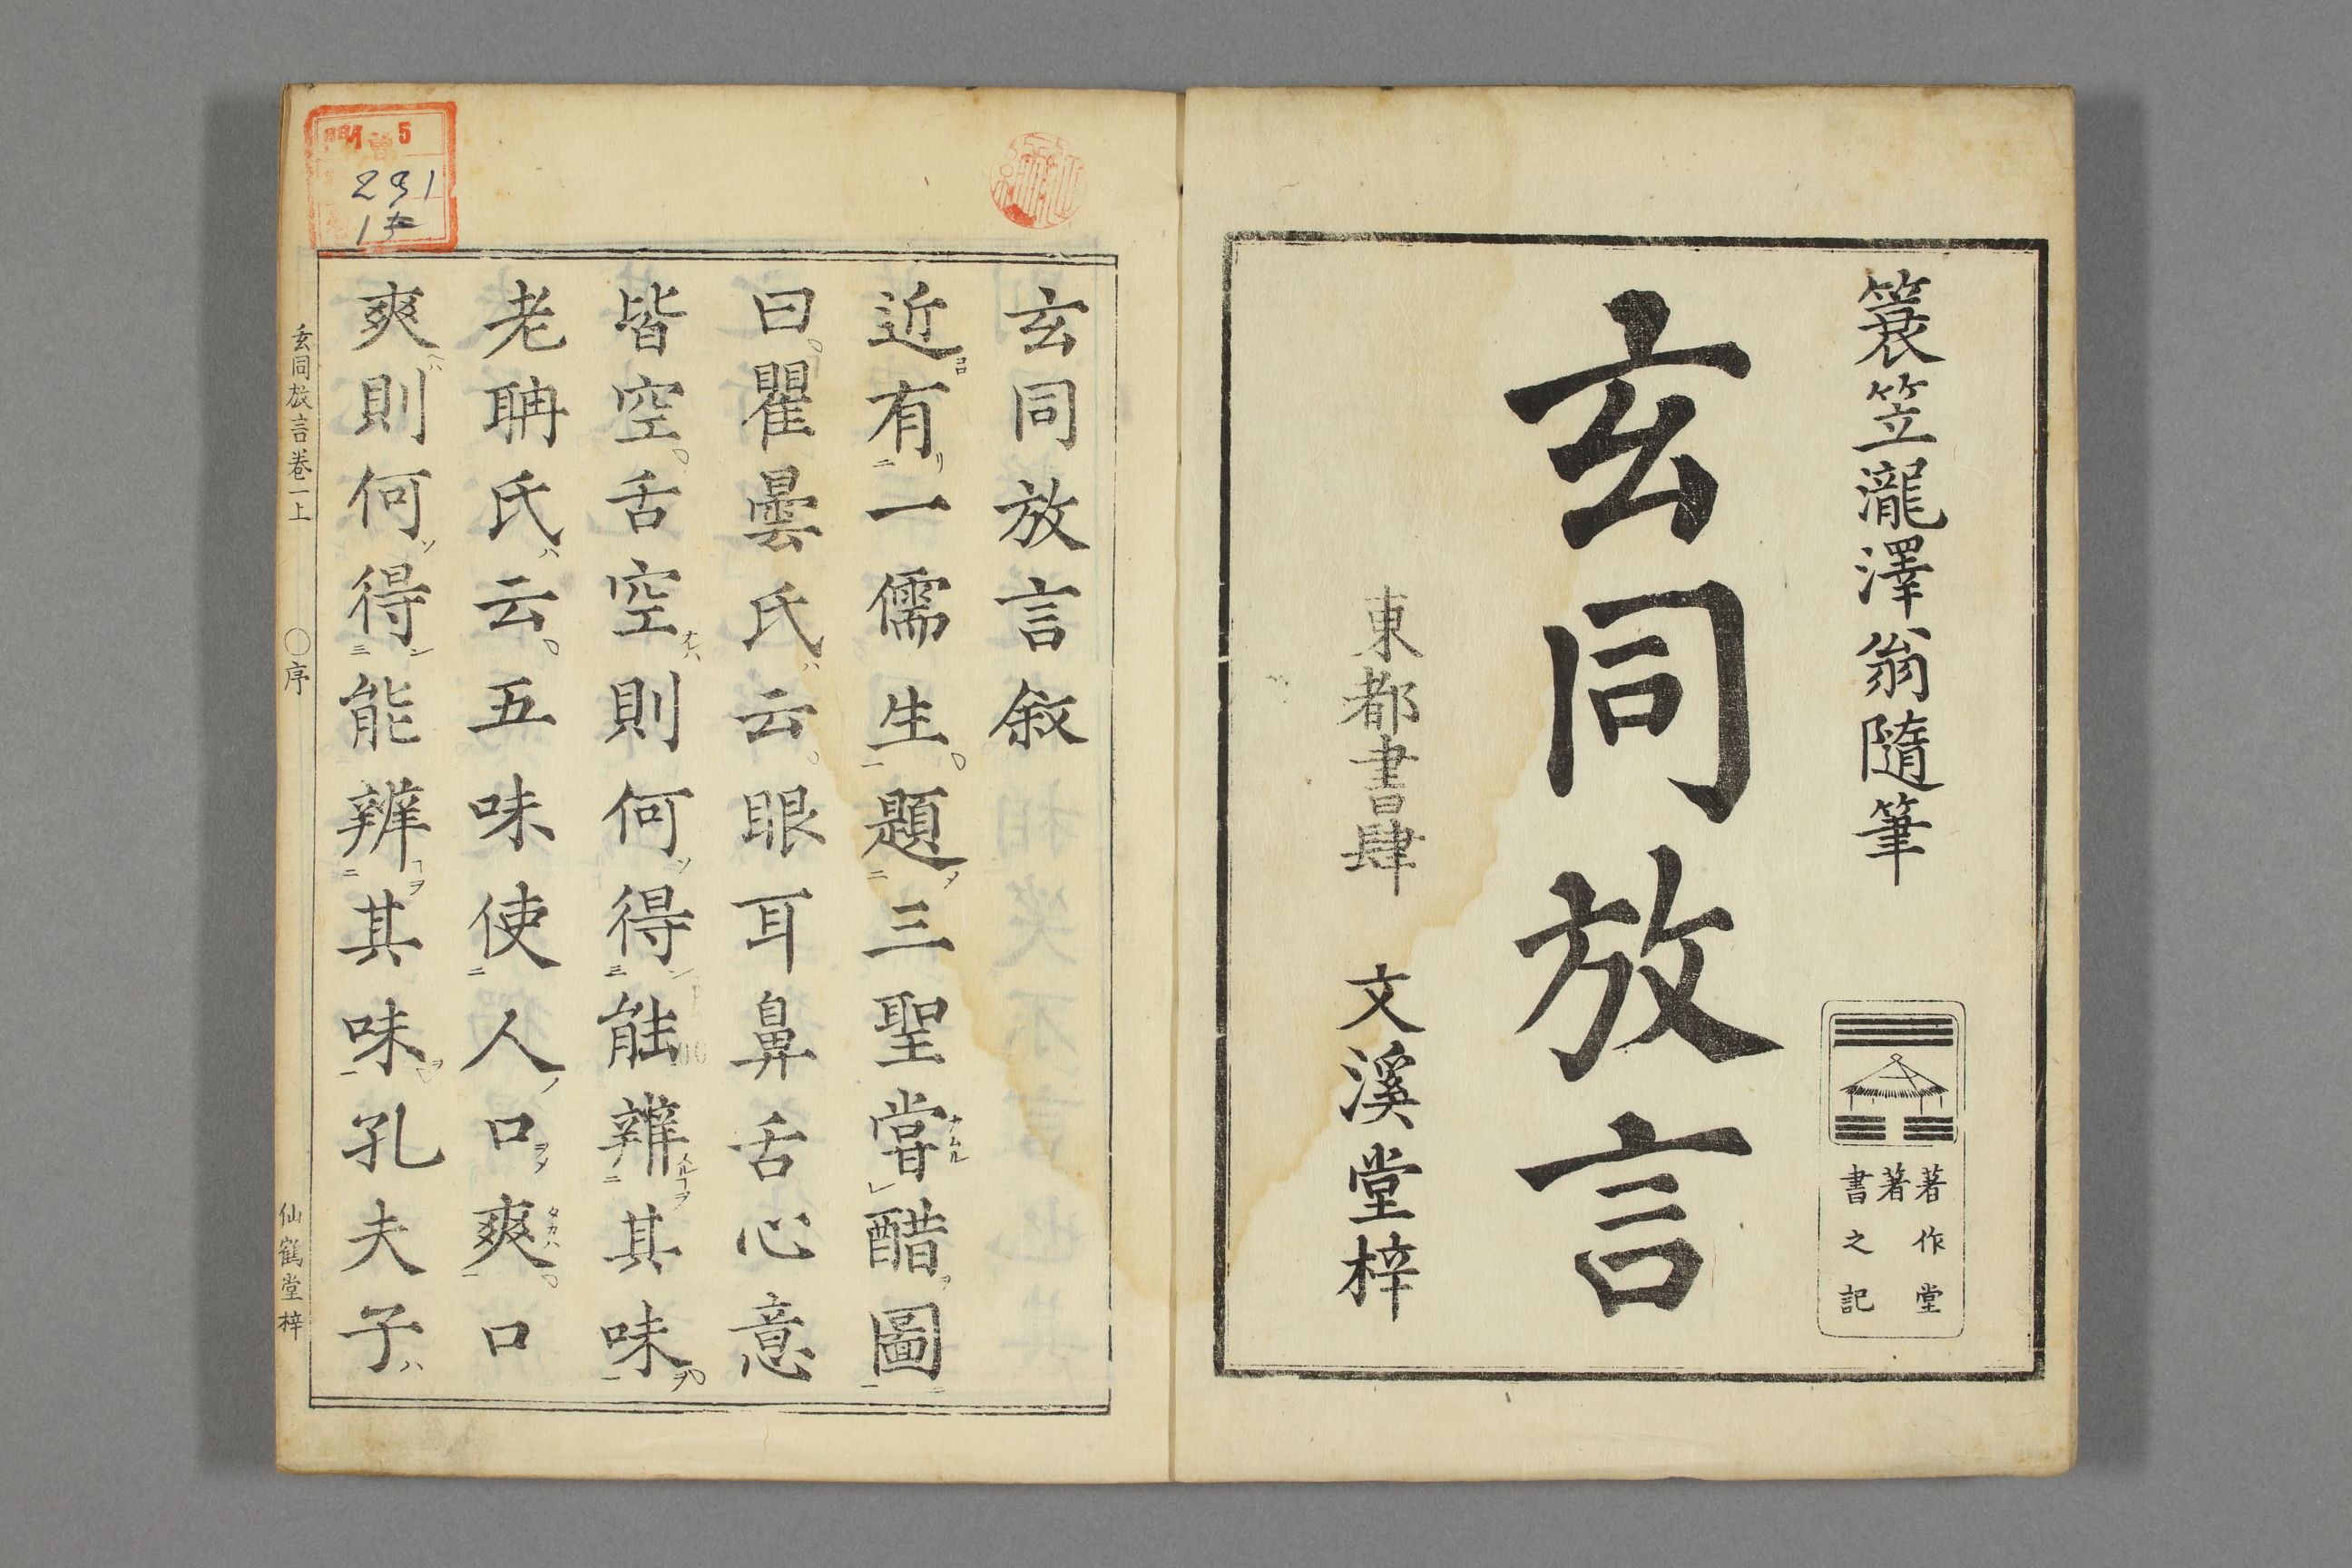 簑笠瀧澤翁隨筆
著作堂
著
書之記
玄同放言
東都書肆 文溪堂梓
玄同放言敘
近有一儒生題三聖嘗醋圖
曰瞿曇氏云眼耳鼻舌心意
皆空舌空則何得能辨其味
老聃氏云五味使人口爽口
爽則何得能辨其味孔夫子
玄同放言卷一上 〇序 仙鶴堂梓
門 5
291
1